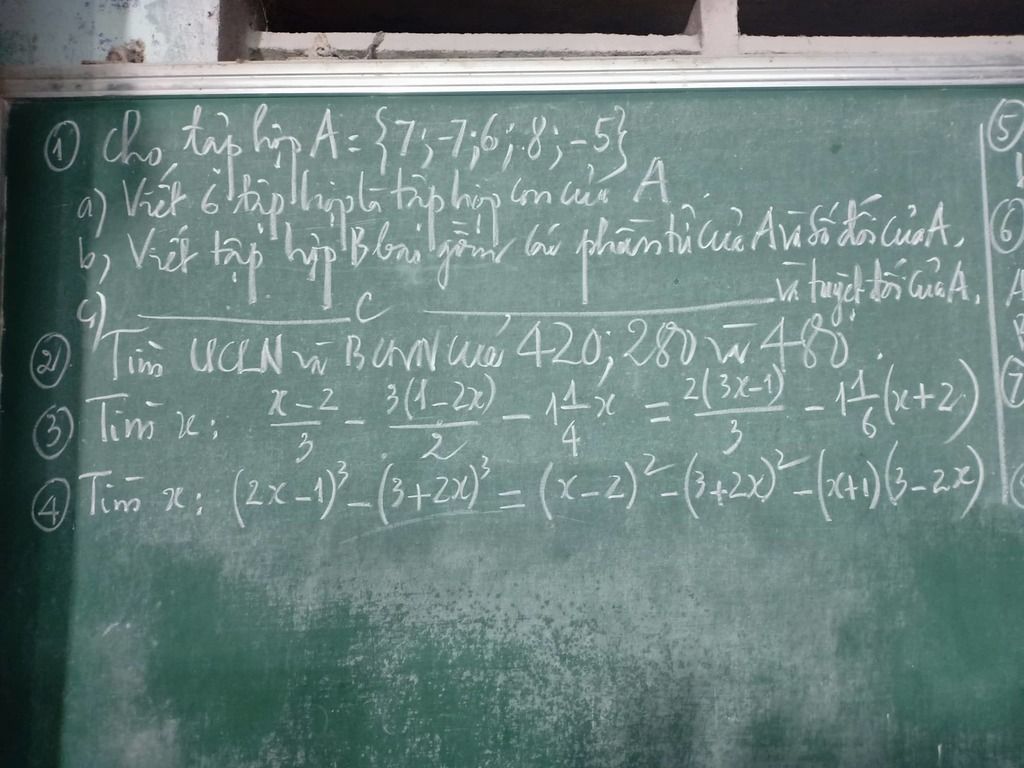 ① Cho tập hợp A = {7; -7; 6; 8; -5}
a) Viết 6 tập hợp là tập hợp con của A
b) Viết tập hợp B bao gồm các phần tử của A và số đối của A.
c) ____ C ____ và tuyệt đối của A.
② Tìm ƯCLN và BCNN của 420; 280 và 480.
③ Tìm x: (x-2)/3 - 3(1-2x)/2 - 1 1/4 x = 2(3x-1)/3 - 1 1/6 (x+2)
④ Tìm x: (2x-1)³ - (3+2x)³ = (x-2)² - (3+2x)² - (x+1)(3-2x)
⑤
⑥
A
B
⑦